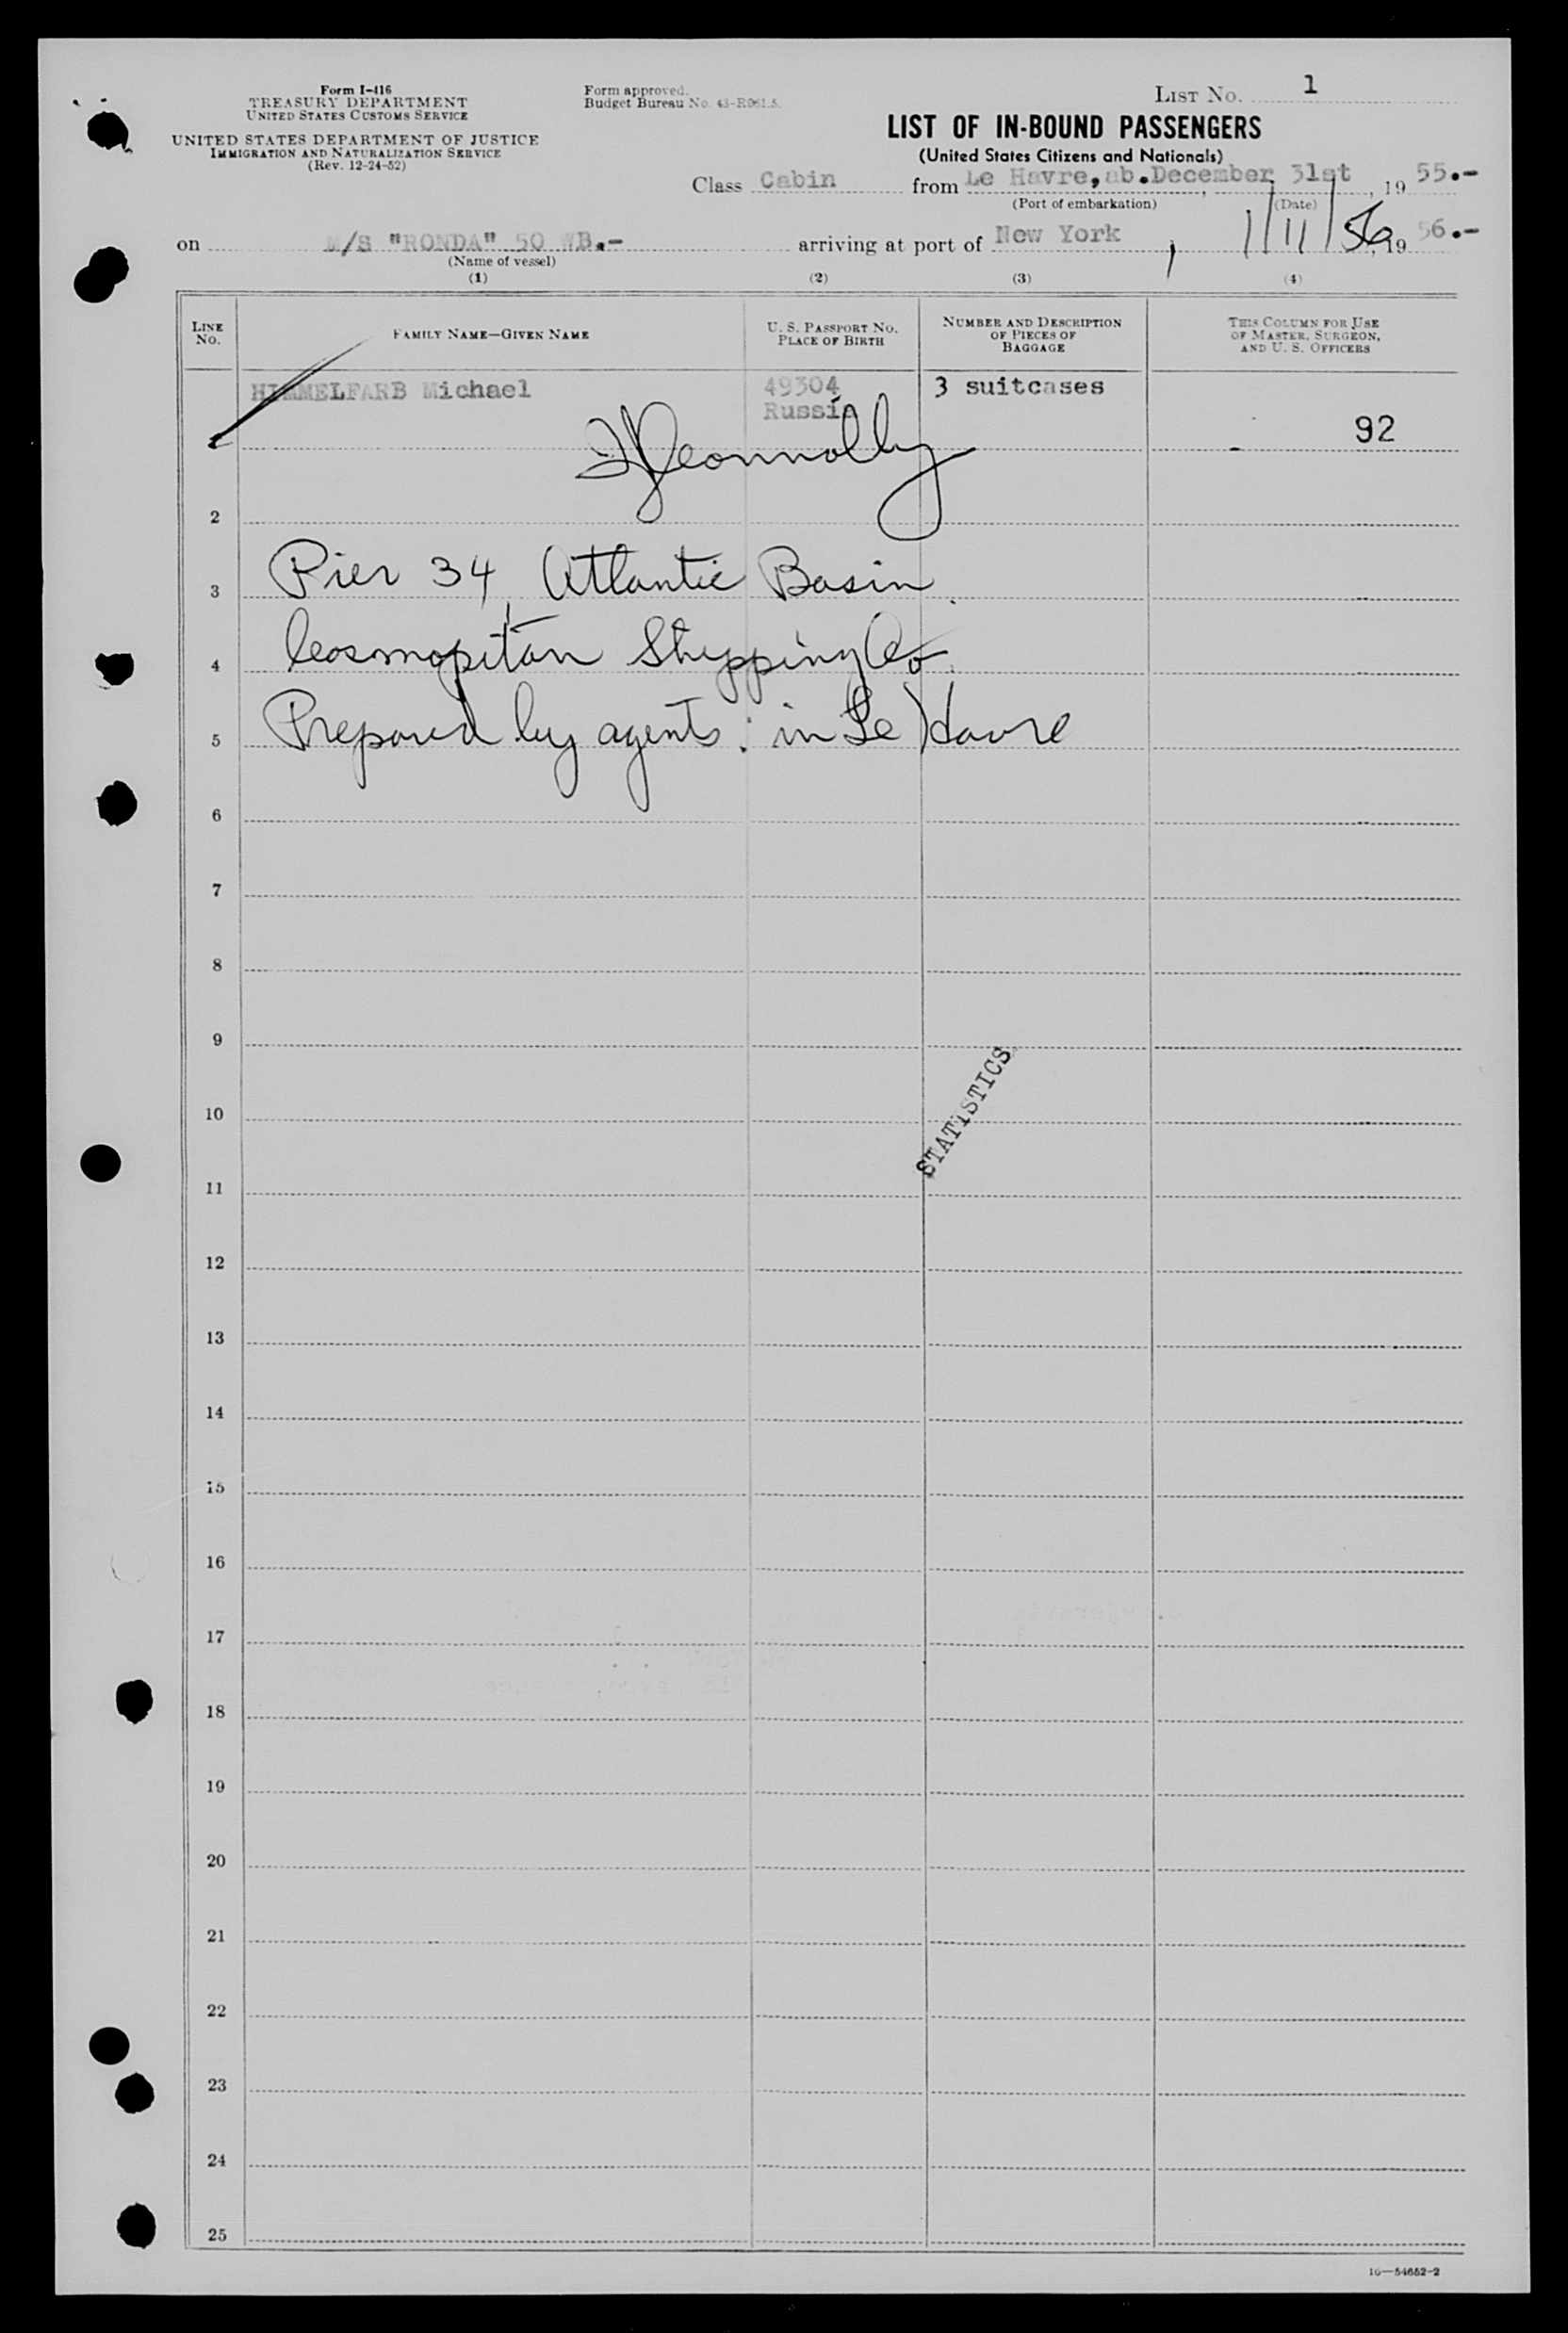 Form I-416
TREASURY DEPARTMENT
UNITED STATES CUSTOMS SERVICE
UNITED STATES DEPARTMENT OF JUSTICE
IMMIGRATION AND NATURALIZATION SERVICE
(Rev. 12-24-52)
Form approved.
Budget Bureau No. 43-R061.5.
LIST NO. 1
LIST OF IN-BOUND PASSENGERS
(United States Citizens and Nationals)
Class Cabin from Le Havre, ab. December 31st, 19 55.-
(Port of embarkation) (Date)
on M/S "RONDA" 50 WB.- arriving at port of New York, 1/11/56, 19 56.-
(Name of vessel)
(1) (2) (3) (4)
LINE NO. FAMILY NAME—GIVEN NAME U. S. PASSPORT NO. PLACE OF BIRTH NUMBER AND DESCRIPTION OF PIECES OF BAGGAGE THIS COLUMN FOR USE OF MASTER, SURGEON, AND U. S. OFFICERS
HIMMELFARB Michael 49304 3 suitcases
Russia
- 92
Connolly
2
3 Pier 34, Atlantic Basin
4 Cosmopitan Shipping Co.
5 Prepared by agents: in Le Havre
6
7
8
9
STATISTICS
10
11
12
13
14
15
16
17
18
19
20
21
22
23
24
25
16—54652-2